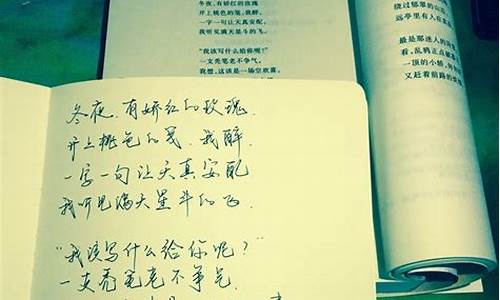 冬夜，有娇红的玫瑰
开上桃色的笺，我醉，
一字一句让天真安配，
我听见满天星斗的飞。
“我该写什么给你呢？”
一支秃笔老不争气，
我想，这该是一场空欢喜，
绕过郁翠的山
远亭里有人在
最是那迷人的
看，乱鸦正点
一顶的小轿，
又赶着前路的
冬夜，有娇红的玫瑰，
开上桃色的笺，我醉，
一字一句让天真安配
我听见满天星斗的飞。
“我该写什么给你呢？”
一支秃笔老不争气，